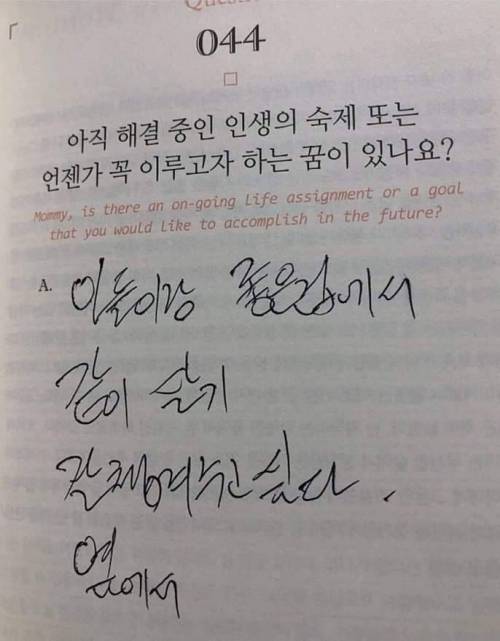 044
아직 해결 중인 인생의 숙제 또는
언젠가 꼭 이루고자 하는 꿈이 있나요?
Mommy, is there an on-going life assignment or a goal
that you would like to accomplish in the future?
A. 이들이랑 좋은집에서
같이 살기
잘 챙겨주고 싶다.
옆에서